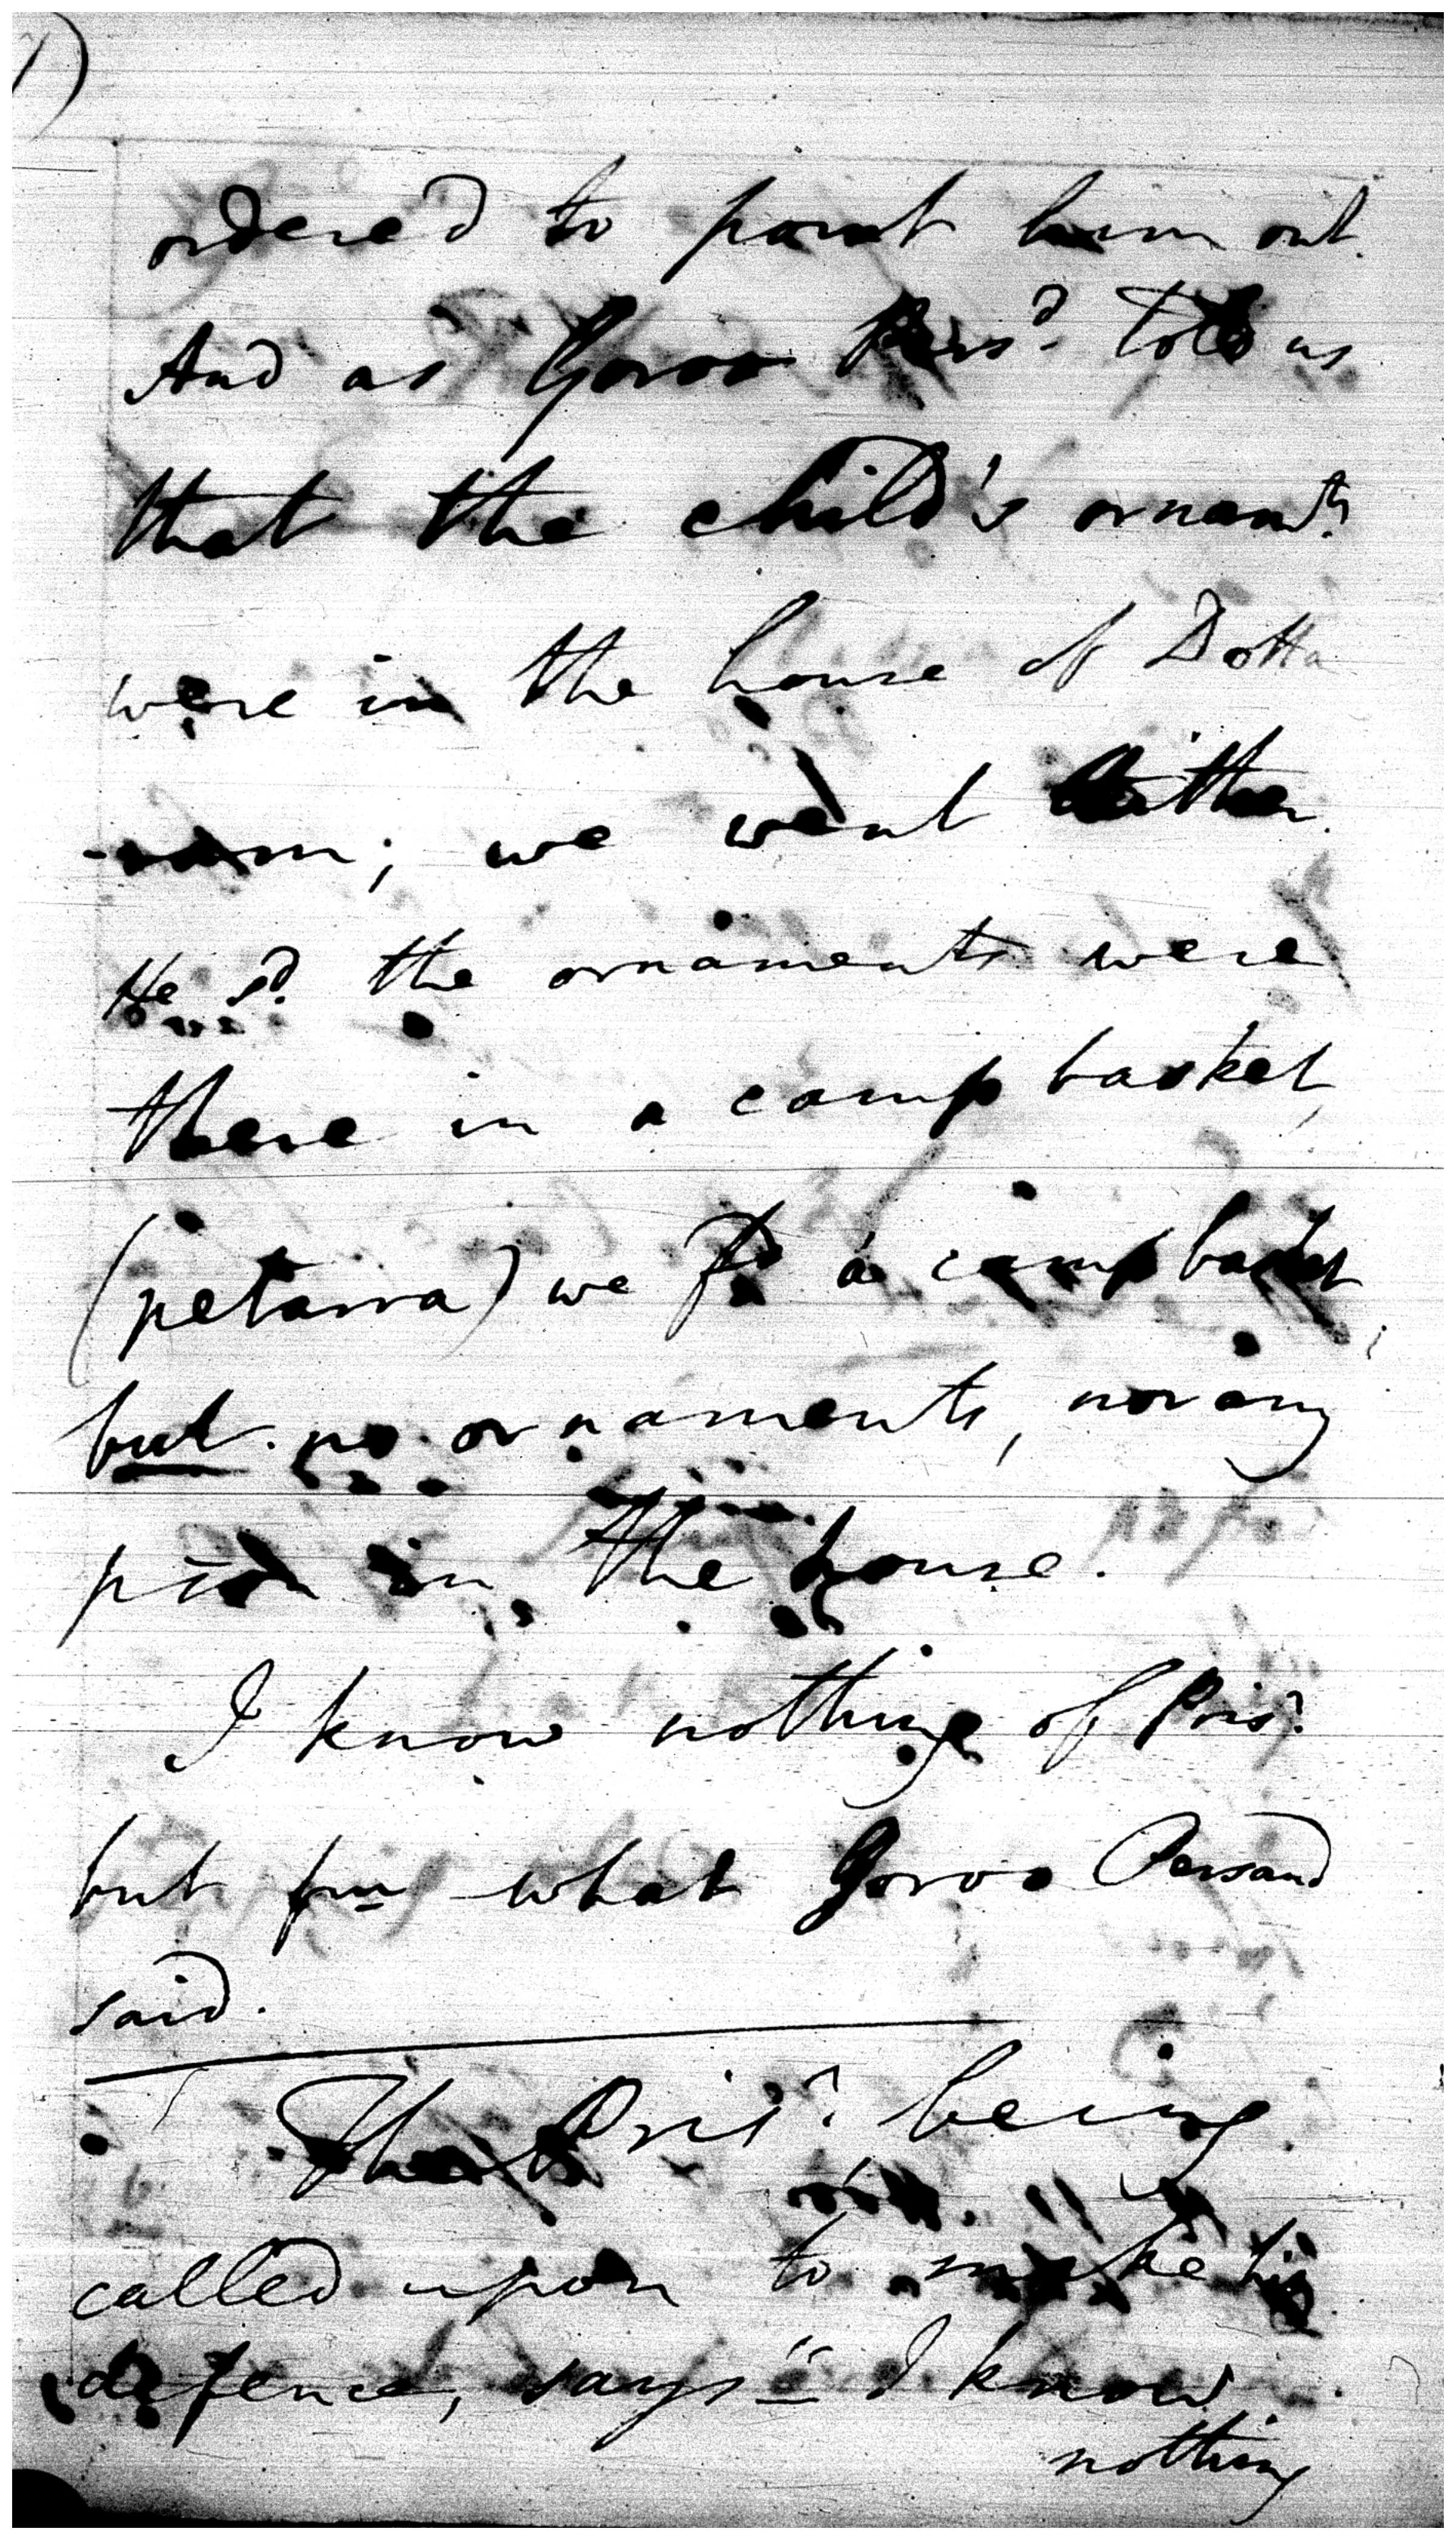 ordered to point him out.
And as Goroo Pers^d. told us
that the child's ornam^ts.
were in the house of Dotta
-ram; we went thither.
He s^d. the ornaments were
there in a camp basket,
(petarra) we f^d a camp basket,
but no ornaments, nor any
in the house.
I know nothing of Pris^r.
but fm what Goroo Persaud
said.
The Pris^r. being
called upon to make his
defence, says "I know
nothing